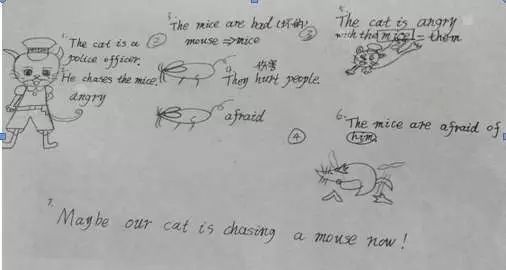 1. The cat is a
police officer.
2
He chases the mice.
angry
3. The mice are bad (坏的)
mouse ⇒ mice
伤害
They hurt people.
afraid
3
The cat is angry
with the mice! = them
4
6. The mice are afraid of
him.
7. Maybe our cat is chasing a mouse now!